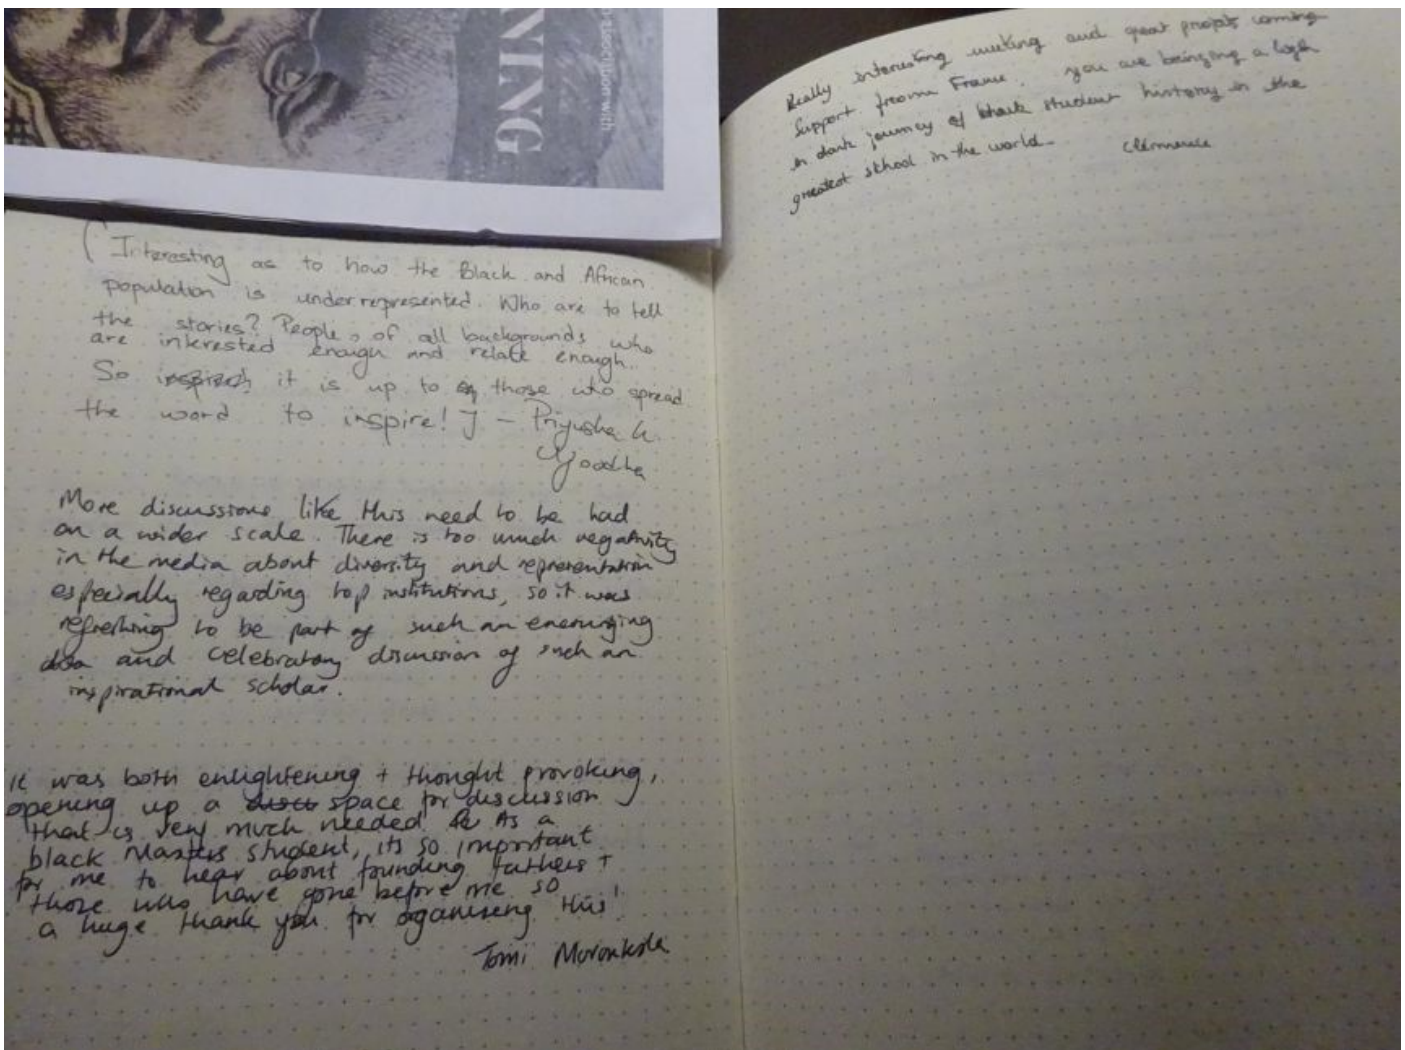 NING
association with
(Interesting as to how the Black and African
population is underrepresented. Who are to tell
the stories? People, of all backgrounds who
are interested enough and relate enough.
So it is up to those who spread
the word to inspire! ] - Priyusha K.
More discussions like this need to be had
on a wider scale. There is too much negativity
in the media about diversity and representation
especially regarding top institutions, so it was
refreshing to be part of such an encouraging
and celebratory discussion of such an
inspirational scholar.
It was both enlightening + thought provoking,
opening up a space for discussion
that is very much needed As a
black Masters student, its so important
for me to hear about founding fathers +
those who have gone before me so
a huge thank you for organising this!
Tomi
Really interesting meeting and great projets coming
Support froom France. you are bringing a ligh
in dark journey of black student history in the
greatest school in the world. Clémence